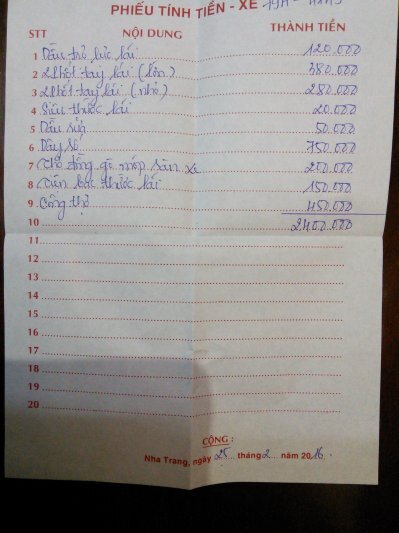 PHIẾU TÍNH TIỀN - XE 79H -
STT NỘI DUNG THÀNH TIỀN
1 Dầu trợ lực lái 120.000
2 2 phốt tay lái (lớn) 380.000
3 2 phốt tay lái (nhỏ) 280.000
4 Siêu thước lái 20.000
5 Dầu 50.000
6 Dây số 750.000
7 Chỗ đồng gò móp sàn xe 200.000
8 Tiện bạc thước lái 150.000
9 Công thợ 450.000
10 2400.000
11
12
13
14
15
16
17
18
19
20
CỘNG :
Nha Trang, ngày 25 tháng 2 năm 2016